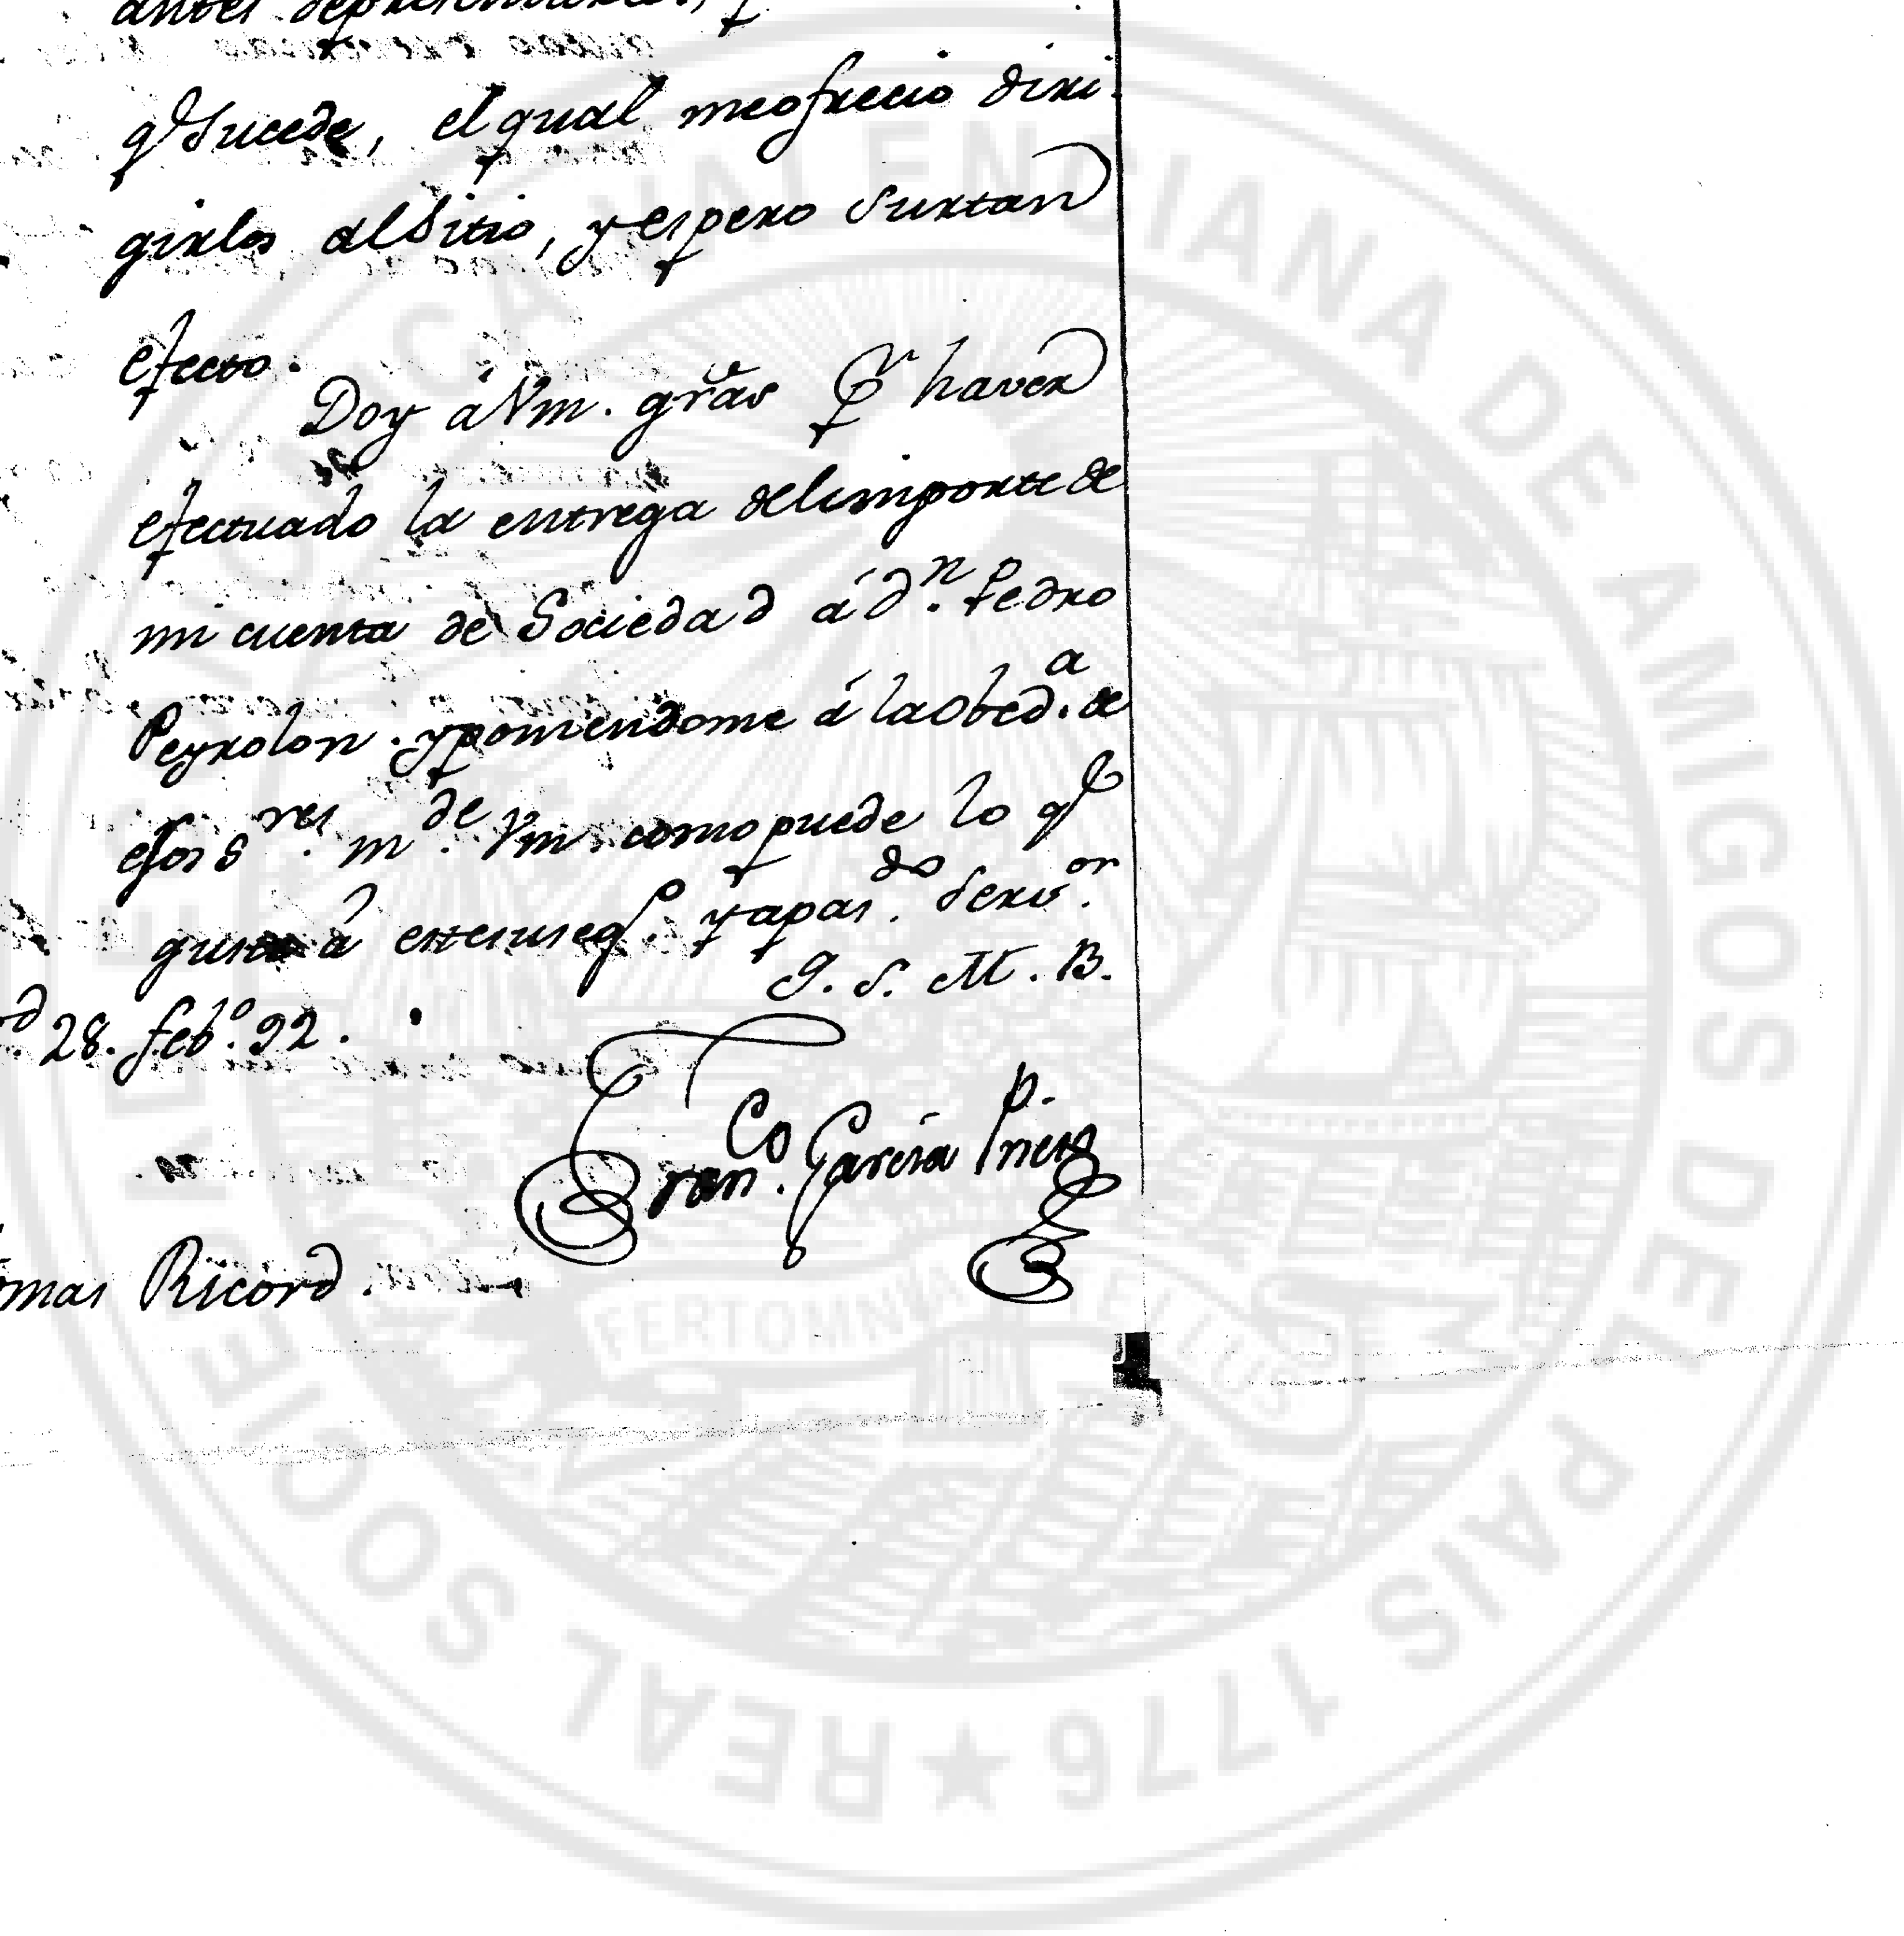 antes de presentarlos, 
qe. sucede, el qual me ofrecio diri-
girlos al Sitio, y espero surtan
efecto.
Doy á Vm. grãs pr. haver
efectuado la entrega del importe de
mi cuenta de Sociedad á dn. Pedro
Peyrolon. y poniendome á la obeda. de
esos Sres. mde. Vm. como puede lo qe.
guste á este su sego. y apasdo. servor.
Q. S. M. B.
d 28. febo. 92.
Franco. García Prieto
p.
omas Ricord.
REAL SOCIEDAD ECONÓMICA VALENTIANA DE AMIGOS DEL PAIS 1776
FERT OMNIA